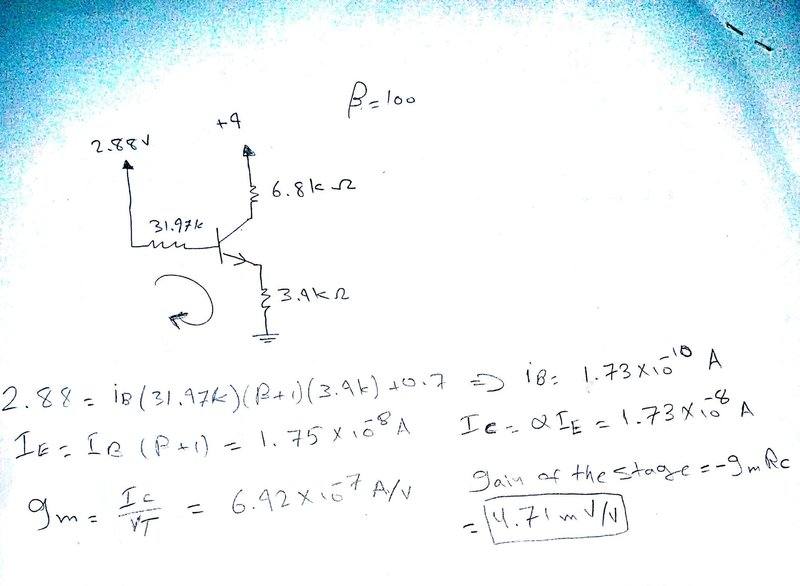 β=100
+9
2.88V
6.8kΩ
31.97k
3.9kΩ
2.88 = iB(31.97k)(β+1)(3.9k)+0.7 => iB= 1.73×10^-10 A
IE = IB (β+1) = 1.75×10^-8 A IC = αIE = 1.73×10^-8 A
gm = IC/VT = 6.92×10^-7 A/V gain of the stage = -gmRC
= 4.71 mV/V